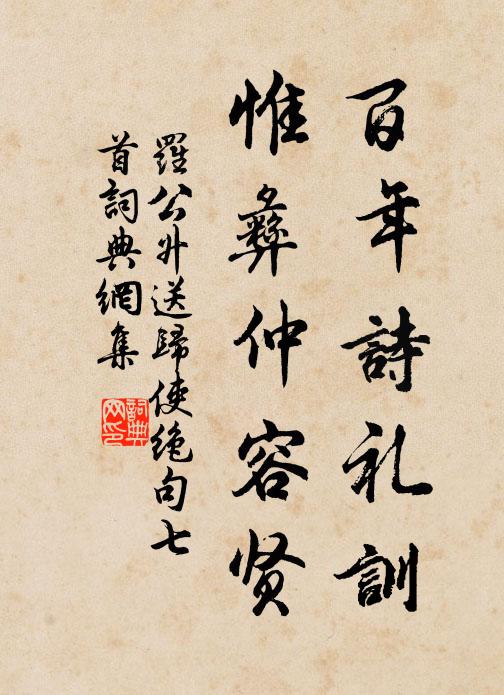 百年詩礼訓
惟彝仲容贤
羅公升送歸使絶句七
首詞典網集
詞典
网印